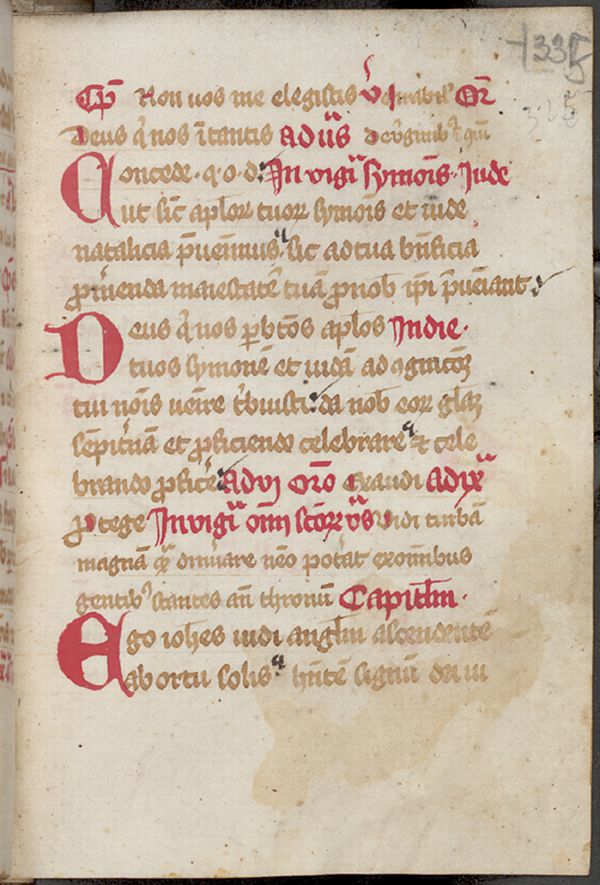 335
325
Cpł Non uos me elegistis V̉ enẻabił Or̄
Deus q̉ nos ītantis Ad ūs
Concede · q · o · d · In vigł̉ symoīs · Jude
Cut sic̄ apl̄oꝝ tuoꝝ symoīs et iude
natalicia p̄uenimus sic ad tua bn̄ficia
ꝓm̉enda maiestatē tuā ꝓ nob̄ ip̄i p̄ueīant
Deus q̉ nos p̱ bt̄os apl̄os In die ·
tuos symonē et iudā ad ꝯgnic̄oꝫ
tui noīs ueīre t̉buisti da nob̄ eoꝝ glāꝫ
sēpit̉nā et ꝓficiendo celebrare ⁊ cele
brando ꝓfic̉e Ad vj or̄o Exaudi Ad ix̄
Protege In vigł̉ oīm sc̄oꝝ v̄s Vidi turbā
magnā qua̅ dinūare nēo pot̉at ex om̄ibus
gentibꝰ stantes an̄ thronū Capitl̄m ·
Ego ioh̄es uidi angl̄m ascendentē
ab ortu solis hn̄tē signū dei ui